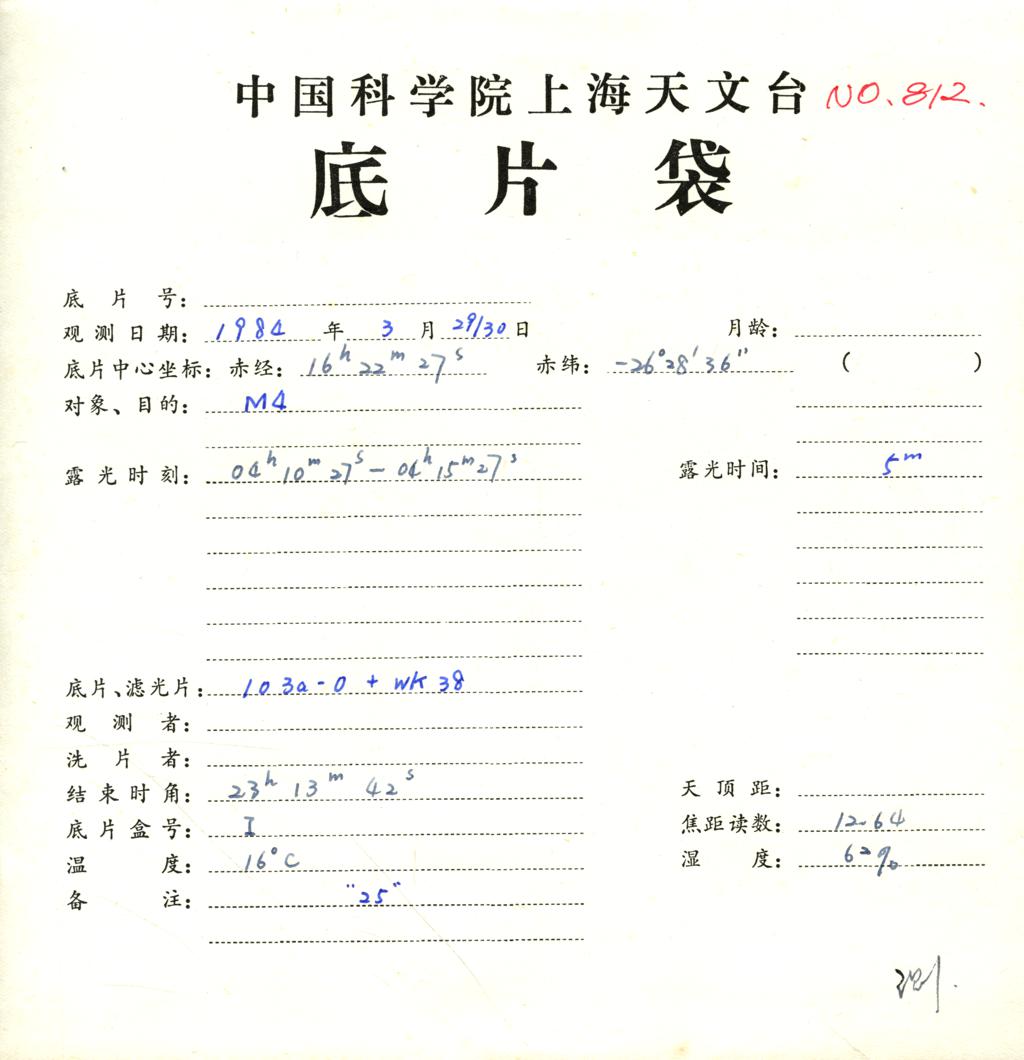 中国科学院上海天文台 NO.812.
底片袋
底片号：
观测日期：1984年3月29/30日 月龄：
底片中心坐标：赤经：16h22m27s 赤纬：-26°28′36″ ( )
对象、目的：M4
露光时刻：04h10m27s-04h15m27s 露光时间：5m
底片、滤光片：103a-O + WK38
观测者：
洗片者：
结束时角：23h13m42s 天顶距：
底片盒号：I 焦距读数：12.64
温度：16°C 湿度：62%
备注："25"